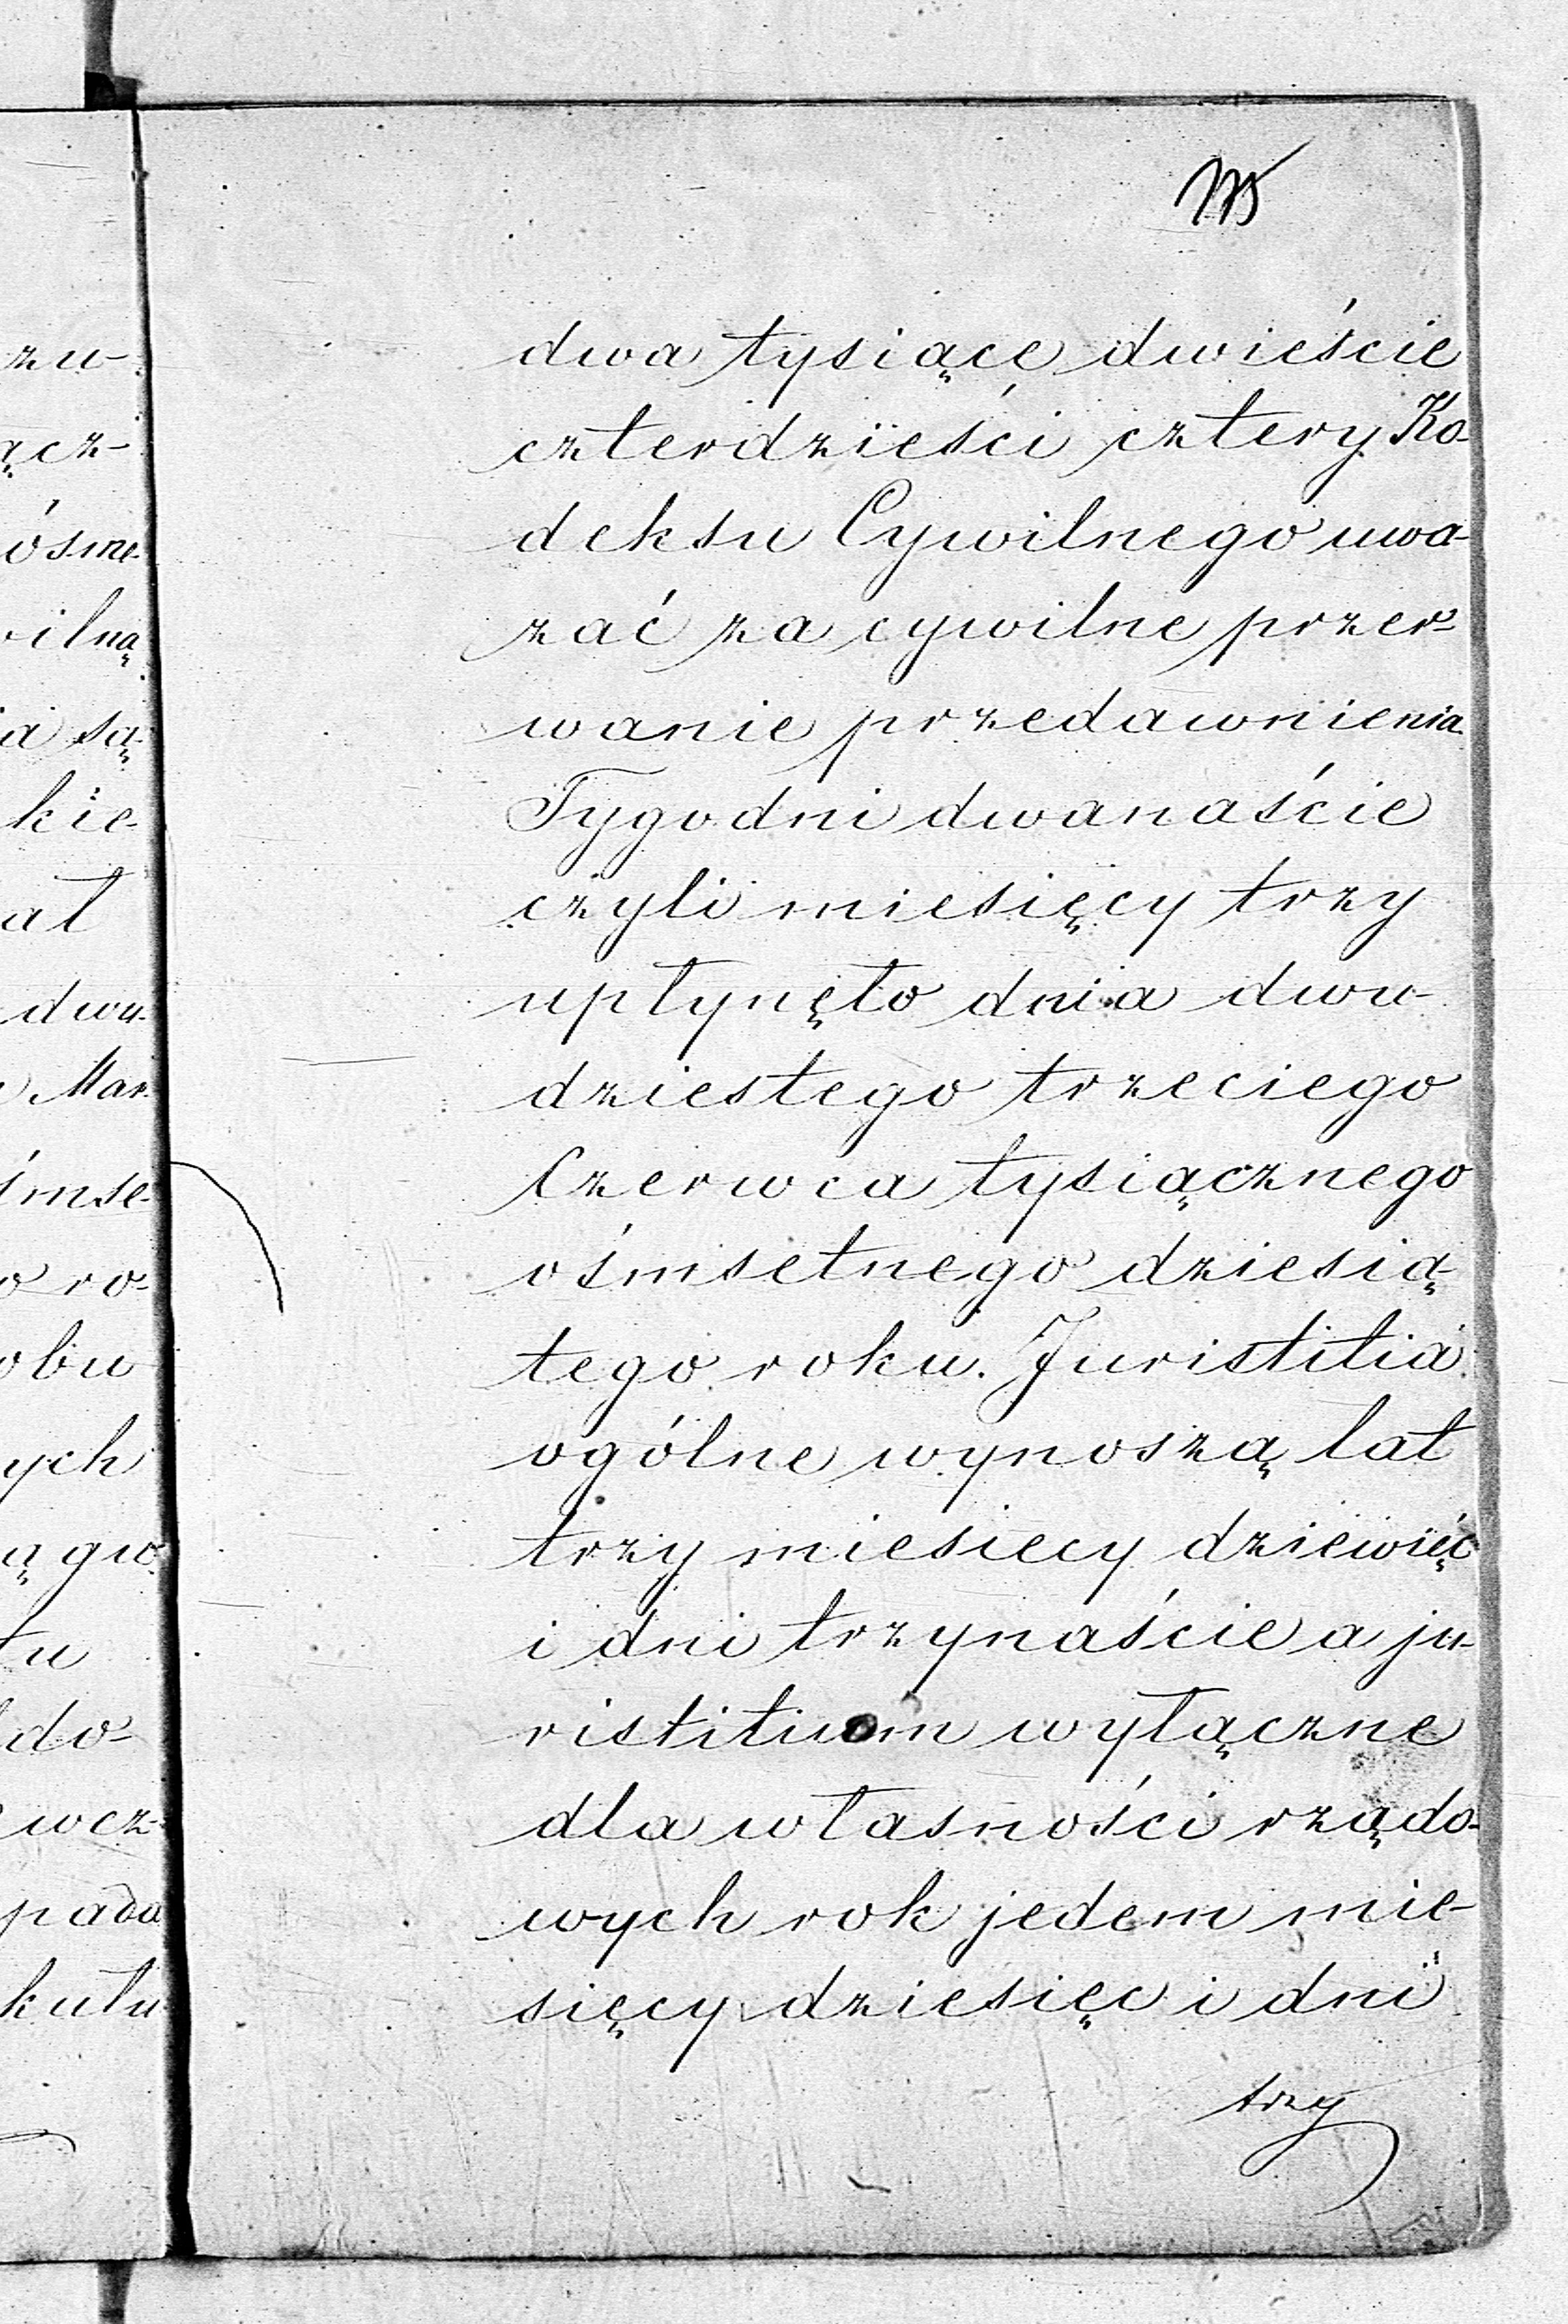 zu-
ącz-
ósme-
wilną
ia są
kie-
at
dwu-
Mar-
śmse-
o ro-
obu
ych
ą gw-
tu
do-
wcz-
pada
kułu
dwa tysiące dwieście
czterdzieści cztery Ko-
deksu Cywilnego uwa-
zać za cywilne przer-
wanie przedawnienia
Tygodni dwanaście
czyli miesięcy trzy
upłynęło dnia dwu-
dziestego trzeciego
Czerwca tysiącznego
ośmsetnego dziesią-
tego roku. Juristitia
ogólne wynoszą lat
trzy miesiecy dziewięć
i dni trzynaście a ju-
ristitium wyłączne
dla własności rządo-
wych rok jedem mie-
sięcy dziesięc i dni
trzy